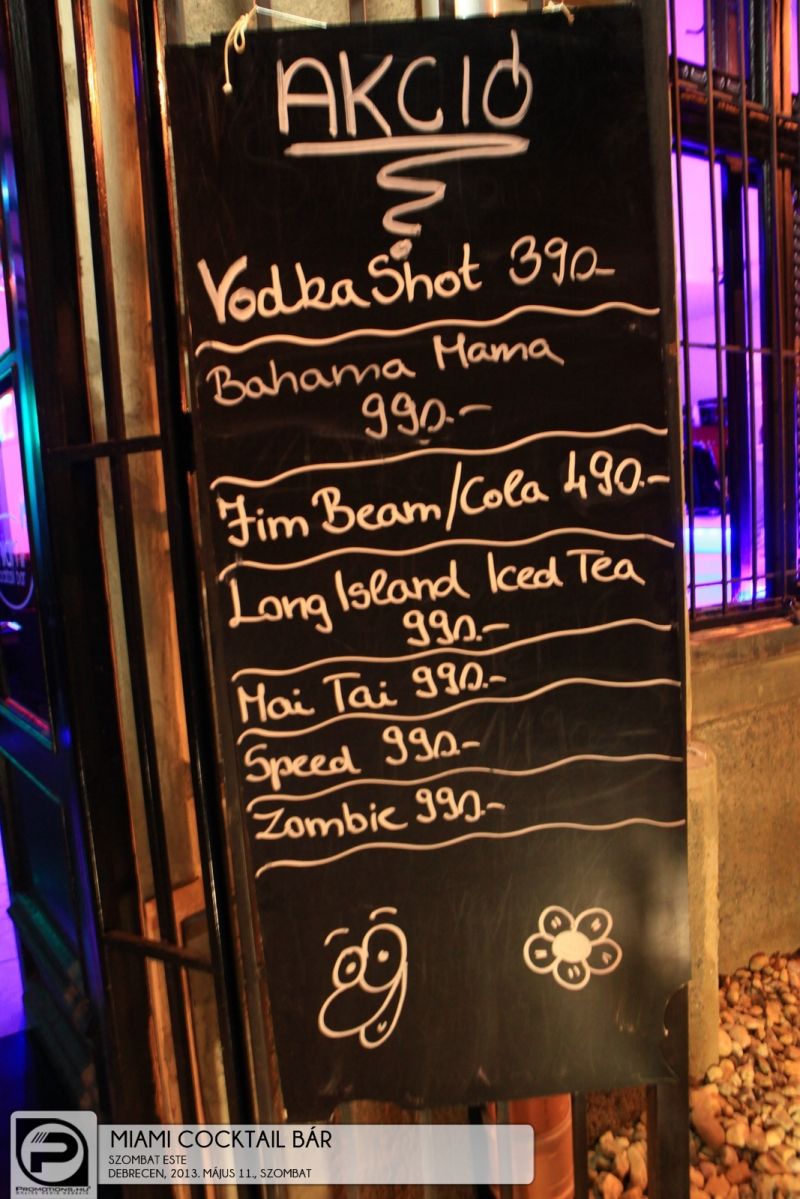 AKCIÓ
Vodka Shot 390.-
Bahama Mama
990.-
Jim Beam/Cola 490.-
Long Island Iced Tea
990.-
Mai Tai 990.-
Speed 990.-
Zombie 990.-
MIAMI COCKTAIL BÁR
SZOMBAT ESTE
DEBRECEN, 2013. MÁJUS 11., SZOMBAT
PROMOTIONS.HU